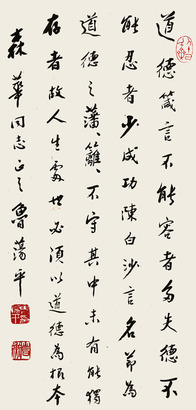 道德箴言不能容者多失德不
能忍者少成功陳白沙言名節為
道德之藩籬不守其中未有能獨
存者故人生處世必須以道德為根本
森華同志正之魯蕩平